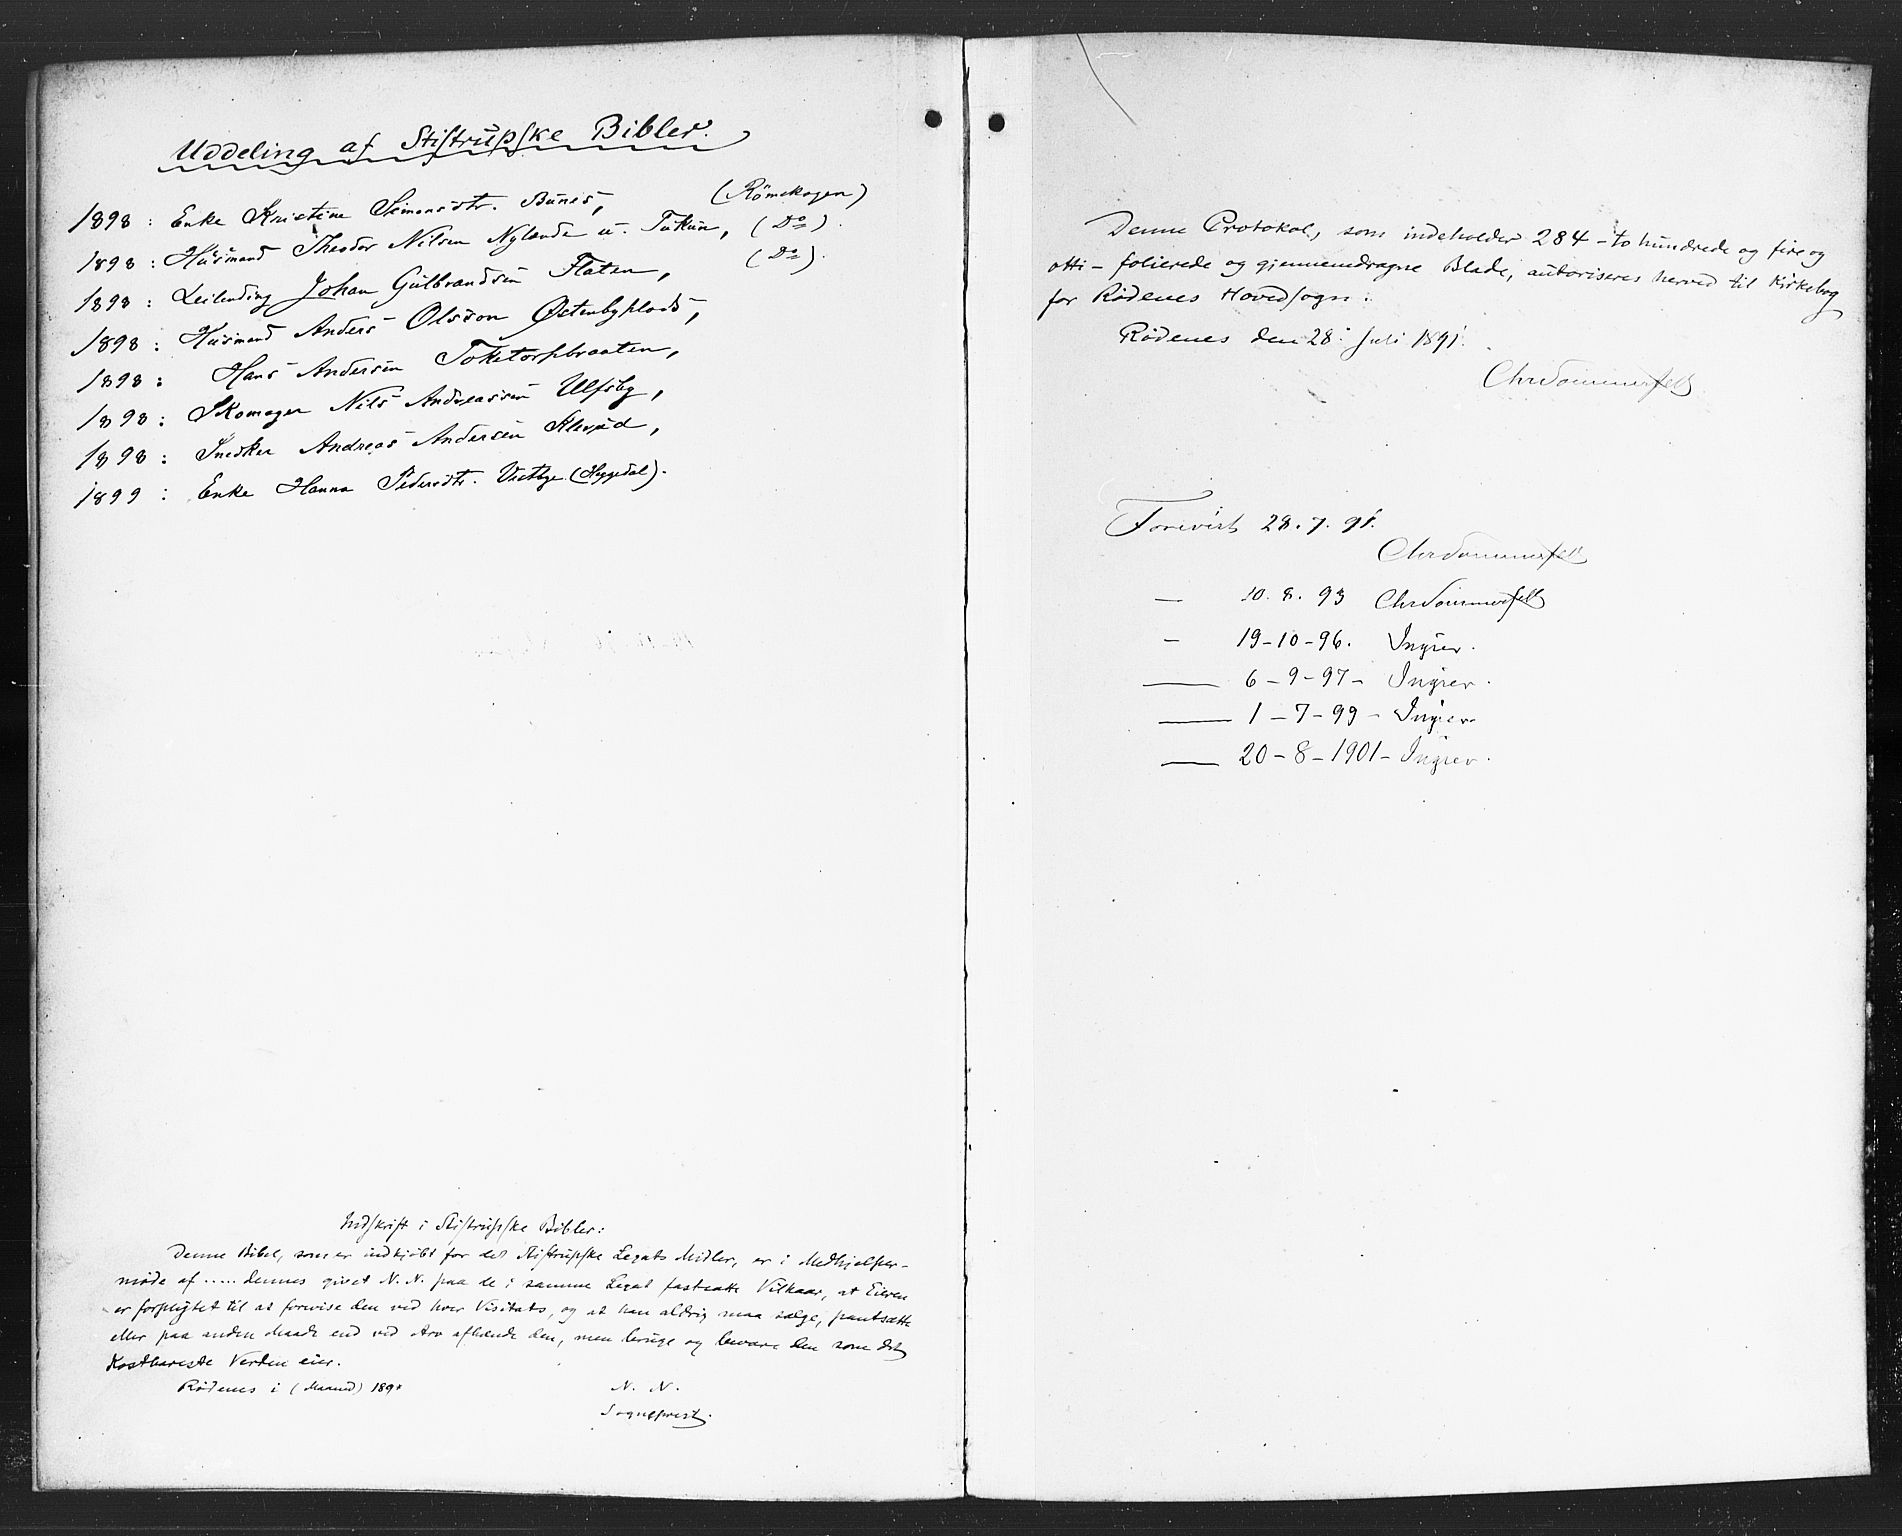 Uddeling af Stistrupske Bibler.
1898 : Enke Kristine Simensdtr. Bunes, (Römskogen)
1898 : Husmand Theodor Nilsen Nylende u. Tukun, (Do).
1898 : Leilending Johan Gulbrandsen Flaten, (Do).
1898 : Husmand Anders Olsson Østenbyplads,
1898 : Hans Andersen Toketorpbraaten,
1898 : Skomager Nils Andreassen Ulfsby,
1898 : Snedker Andreas Andersen Klerud,
1899 : Enke Hanna Pedersdtr. Vestbye (Heggedal).
Indskrift i Stistrupske Bibler:
Denne Bibel, som er indkjöbt for det Stistrupske Legats Midler, er i Medhjelper-
möde af ..... dennes givet N. N. paa de i samme Legat fastsatte Vilkaar, at Eieren
er forpligtet til at forevise den ved hver Visitats, og at han aldrig maa sælge, pantsætte
eller paa anden Maade end ved Arv afhænde den, men bruge og bevare den som det
Kostbareste Verden eier.
Rödenes i (Maaned) 189*
N. N.
Sogneprest.
Denne Protokol, som indeholder 284 - to hundrede og fire og
otti - folierede og gjennemdragne Blade, autoriseres herved til Kirkebog
for Rödenes Hovedsogn.
Rödenes den 28. Juli 1891.
Chr Sommerfelt
Forevist 28. 7. 91.
Chr Sommerfelt
— 10. 8. 93 Chr Sommerfelt
— 19-10-96. Ingier.
— 6-9-97- Ingier.
— 1-7-99- Ingier.
— 20-8-1901- Ingier.